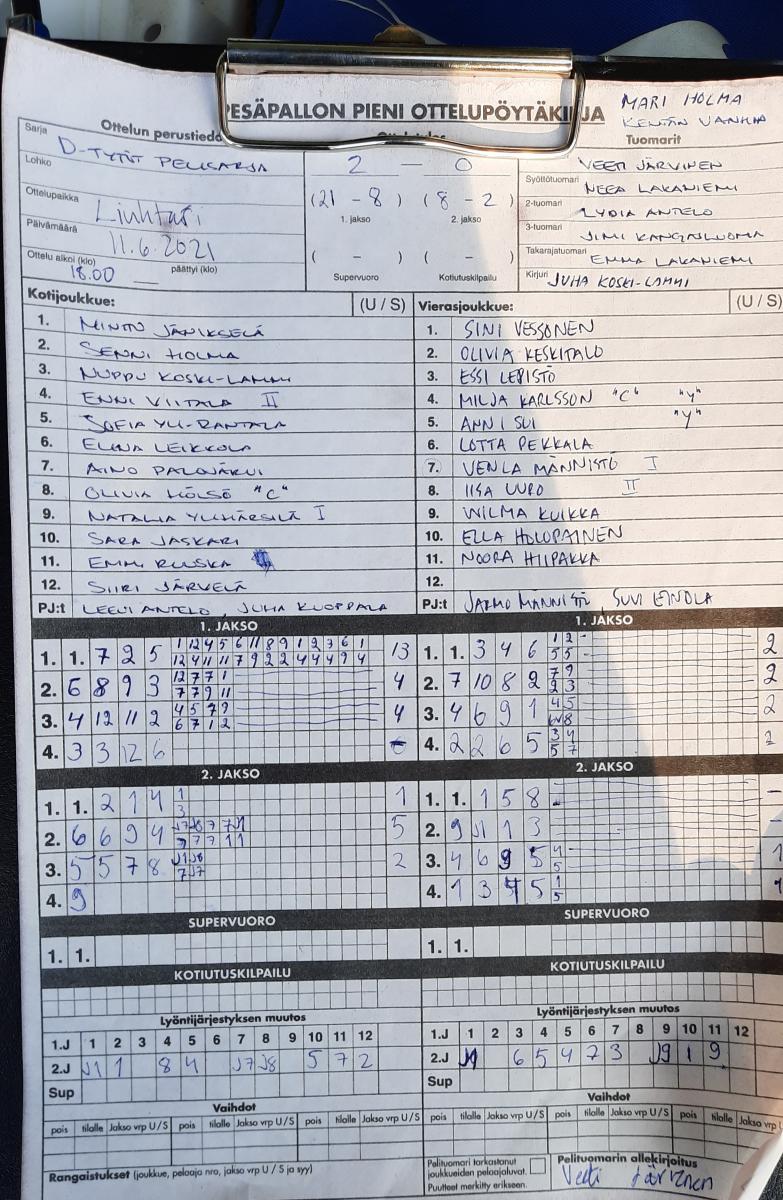 PESÄPALLON PIENI OTTELUPÖYTÄKIRJA
MARI HOLMA
Ottelun perustiedo
Tuomarit
Sarja D-TYTÖT
Lohko
2 — 0
VEETI JÄRVINEN
Syöttötuomari NEEA LAKANIEMI
Ottelupaikka
(21 - 8) (8 - 2)
1. jakso 2. jakso
2-tuomari LYDIA ANTELO
3-tuomari JIMI KANGASLUOMA
Päivämäärä 11.6.2021
( - ) ( - )
Takarajatuomari EMMA LAKANIEMI
Ottelu alkoi (klo) 18.00 päättyi (klo)
Supervuoro Kotiutuskilpailu
Kirjuri JUHA KOSKI-LAMMI
Kotijoukkue: (U / S) Vierasjoukkue: (U / S)
1. 1. SINI VESSONEN
2. SENNI HOLMA 2. OLIVIA KESKITALO
3. NUPPU KOSKI-LAMMI 3. ESSI LEPISTÖ
4. ENNI VIITALA II 4. MILJA KARLSSON "C" "Y"
5. SOFIA YLI-RANTALA 5. ANNI SUI "Y"
6. LEIKKOLA 6. LOTTA PEKKALA
7. AINO PALOJÄRVI 7. VENLA MÄNNISTÖ I
8. OLIVIA "C" 8. IISA UURO II
9. NATALIA I 9. WILMA KUIKKA
10. SARA JASKARI 10. ELLA HOLOPAINEN
11. EMMI RUUSKA 11. NOORA HIIPAKKA
12. SIIRI JÄRVELÄ 12.
PJ:t LEEVI ANTELO, JUHA KUOPPALA PJ:t JARMO MÄNNISTÖ SUVI
1. JAKSO 1. JAKSO
1. 1. 7 2 5 1 12 4 5 6 11 8 9 1 2 7 6 1 13 1. 1. 3 4 6 1 2 2
12 4 11 11 7 9 2 2 4 4 4 9 4 5 5
2. 6 8 9 3 12 7 7 1 4 2. 7 10 8 2 7 9 2
7 7 9 11 2 3
3. 4 12 11 2 4 5 7 9 4 3. 4 6 9 1 4 5 2
6 7 1 2 8
4. 3 3 12 6 4. 2 2 6 5 3 4 2
5 7
2. JAKSO 2. JAKSO
1. 1. 2 1 4 1 1 1. 1. 1 5 8 -
3
2. 6 6 9 4 5 2. 9 J1 1 3 -
3. 5 5 7 8 J1 J8 2 3. 4 6 9 5 4 1
7 J7 5
4. 9 4. 1 3 4 5 1 1
5
SUPERVUORO SUPERVUORO
1. 1. 1. 1.
KOTIUTUSKILPAILU KOTIUTUSKILPAILU
Lyöntijärjestyksen muutos Lyöntijärjestyksen muutos
1.J 1 2 3 4 5 6 7 8 9 10 11 12 1.J 1 2 3 4 5 6 7 8 9 10 11 12
2.J J1 1 8 4 J7 J8 5 7 2 2.J 6 5 4 7 3 J9 1 9
Sup Sup
Vaihdot Vaihdot
pois tilalle Jakso vrp U / S pois tilalle Jakso vrp U / S pois tilalle Jakso vrp U / S pois tilalle Jakso vrp U / S
Rangaistukset (joukkue, pelaaja nro, jakso vrp U / S ja syy)
Pelituomari tarkastanut joukkueiden pelaajaluvat.
Puutteet merkitty erikseen.
Pelituomarin allekirjoitus
Veeti Järvinen